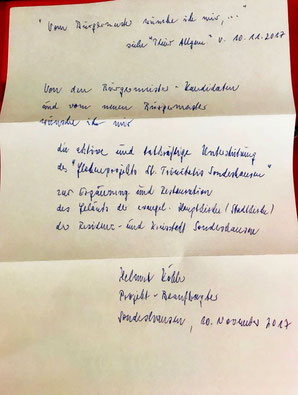 "Vom Bürgermeister wünsche ich mir, ..."
siehe "Thür. Allgem." v. 10.11.2017
Von den Bürgermeister-Kandidaten
und vom neuen Bürgermeister
wünsche ich mir
die aktive und tatkräftige Unterstützung
des "Glockenprojekts St. Trinitatis Sondershausen"
zur Ergänzung und Restauration
des Geläuts der evangel. Hauptkirche (Stadtkirche)
der Residenz- und Kreisstadt Sondershausen
Helmut Köhler
Projekt-Beauftragter
Sondershausen, 10. November 2017